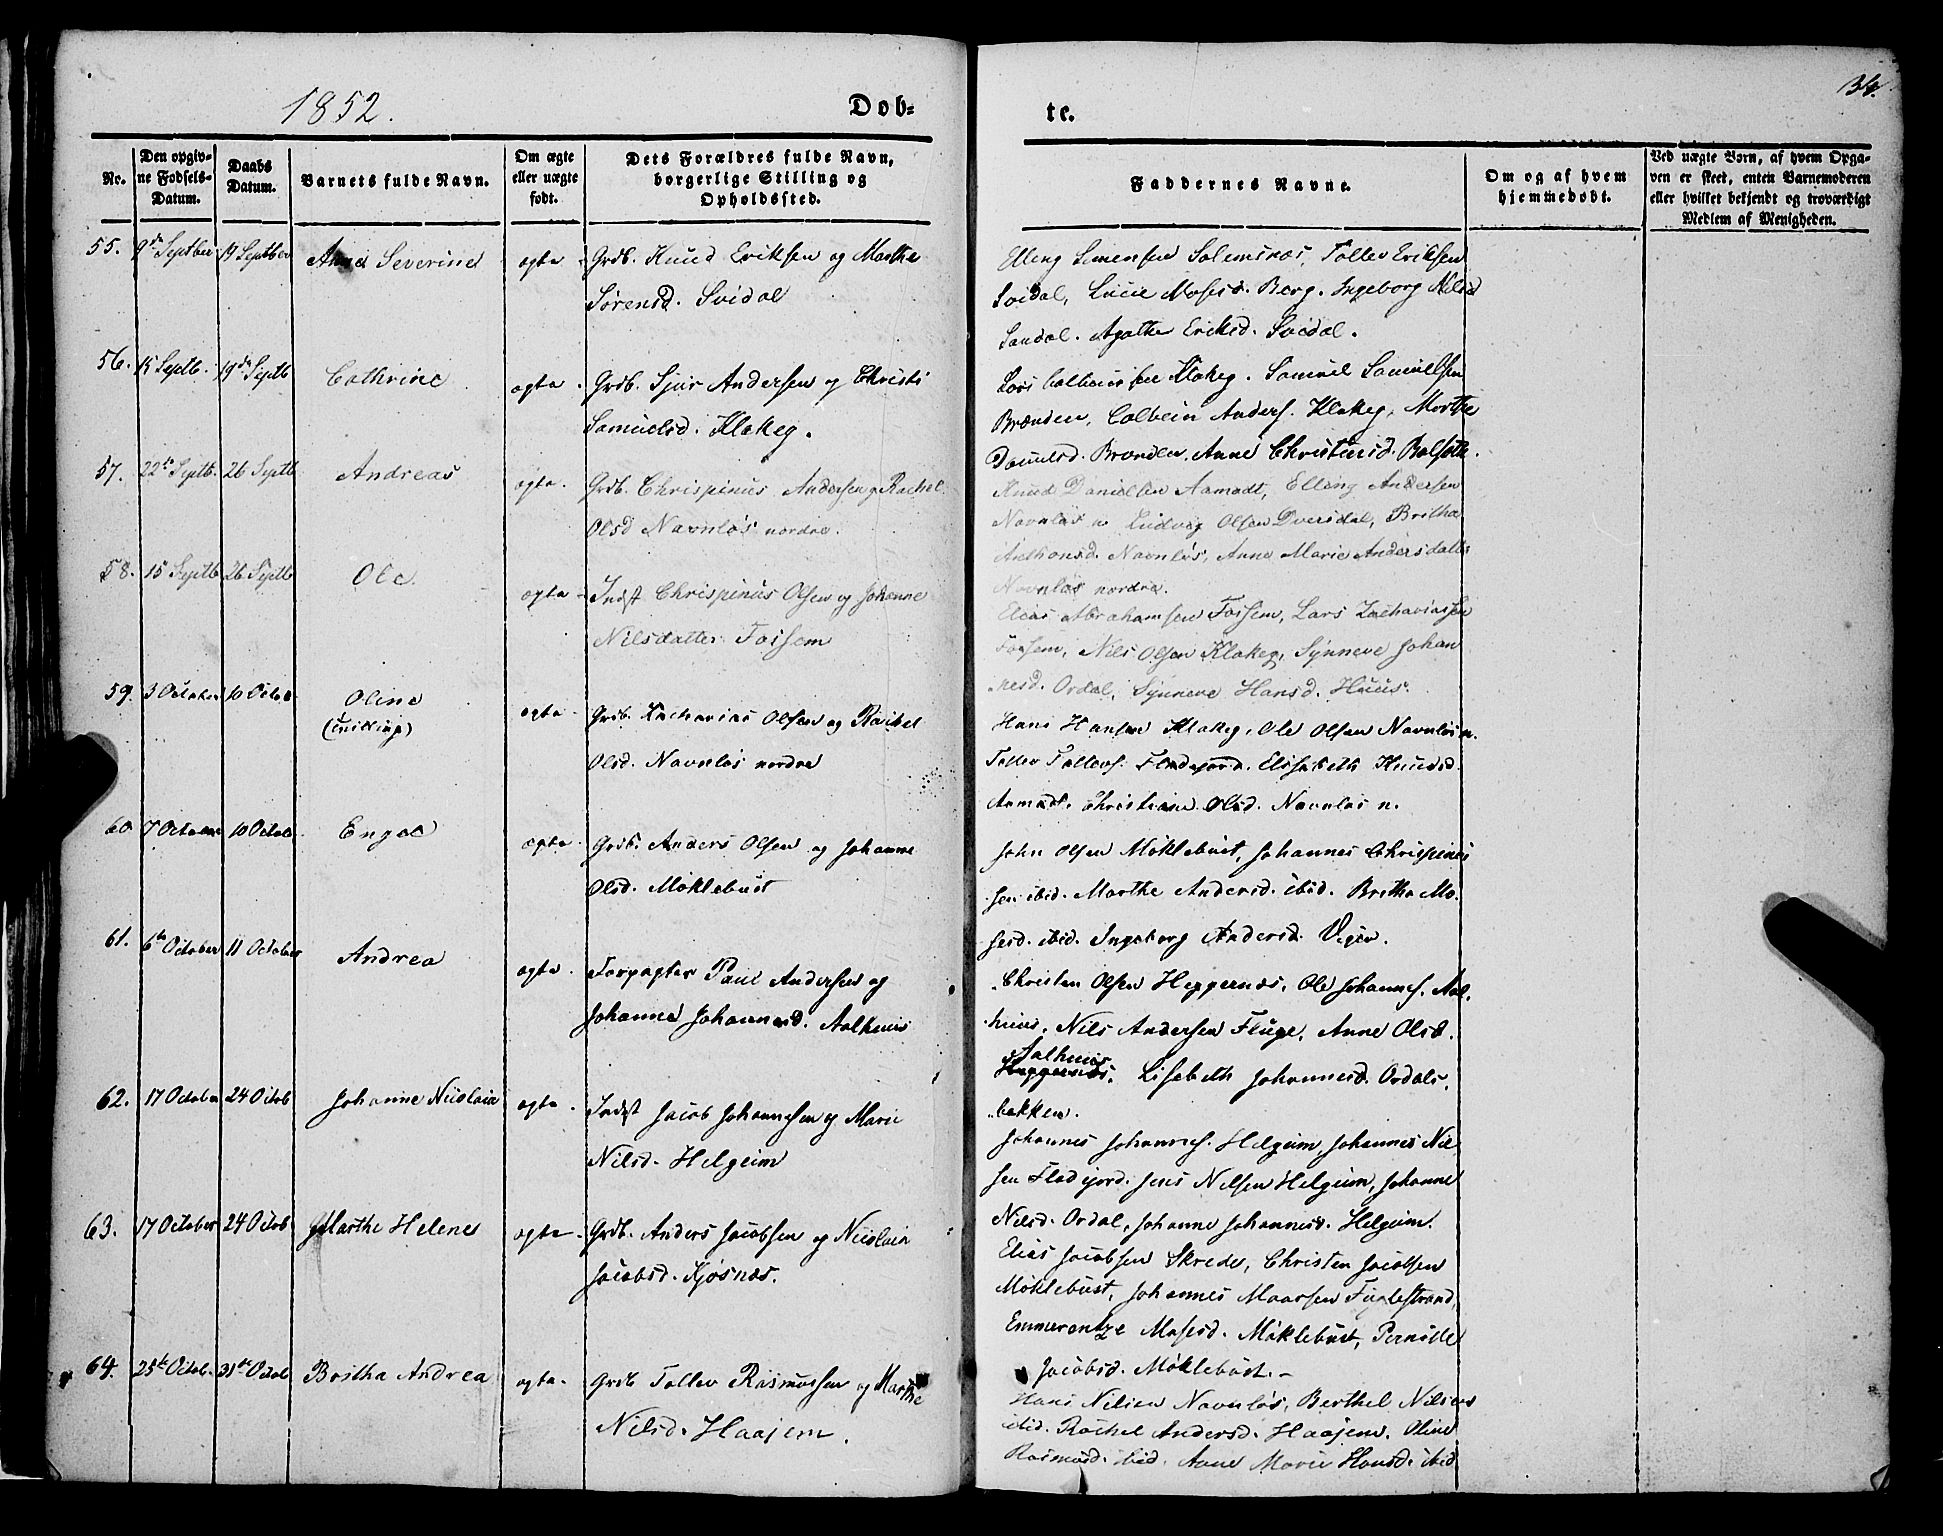 1852.
Døb-
te.
34.
No.
Den opgiv-
ne Fødsels-
Datum.
Daabs
Datum.
Barnets fulde Navn.
Om ægte
eller uægte
født.
Dets Forældres fulde Navn,
borgerlige Stilling og
Opholdssted.
Faddernes Navne.
Om og af hvem
hjemmedøbt.
Ved uægte Børn, af hvem Opga-
ven er skeet, enten Barnemoderen
eller hvilket bekjendt og troværdigt
Medlem af Menigheden.
55. 9de Septber 19 Septber Anne Severine ægte. Grdb. Knud Eriksen og Marthe
Sørensd. Svidal
Elling Simensen Solemsnæs, Tollev Eriksen
Svidal, Lucie Mosesd. Berg. Ingeborg Nilsd
Sandal. Agathe Eriksd. Svidal.
56. 15 Septb. 19de Septb Cathrine ægte. Grdb. Sjur Andersen og Christi
Samuelsd. Klakeg.
Lars Colbeinsen Klakeg. Samuel Samuelsen
Brænden, Colbein Anders. Klakeg, Marthe
Danielsd. Brænden, Anne Christensd. Bolsæth.
57. 22de Septb. 26 Septb Andreas ægte. Grdb. Chrispinus Andersen og Rachel
Olsd Navnløs nordre.
Knud Danielsen Aamodt, Elling Andersen
Navnløs n. Ludvig Olsen Dversdal, Britha
Anthonsd. Navnløs, Anne Marie Andersdatter
Navnløs nordre.
58. 15 Septb 26 Septb Ole. ægte. Indst Chrispinus Olsen og Johanne
Nilsdatter Fossem
Elias Abrahamsen Fossem, Lars Zachariassen
Fossem, Nils Olsen Klakeg, Synneve Johan
nesd. Ordal, Synneve Hansd. Huus.
59. 3 October 10 Octob Oline
(Tvilling)
ægte Grdb. Zacharias Olsen og Rachel
Olsd. Navnløs nordre
Hans Hansen Klakeg, Ole Olsen Navnløs n.
Tollev Tollevs. Fladejord. Elisabeth Knudsd.
Aamodt. Christiane Olsd. Navnløs n.
60 7 October 10 Octob Engel ægte. Grdb. Anders Olsen og Johanne
Olsd. Møklebust
John Olsen Møklebust, Johannes Chrispinus
sen ibid. Marthe Andersd. ibid. Britha Mo-
sesd. ibid. Ingeborg Andersd.
61. 6te October 11 October Andrea ægte. Forpagter Paul Andersen og
Johanne Johannesd. Aalhuus
Christen Olsen Heggernæs. Ole Johannes. Aal-
huus, Nils Andersen Fluge, Anne Olsd.
Aalhuus
Heggernæs. Lisabeth Johannesd. Ordals-
bakken.
62. 17 October 24 Octob Johanne Nicolaia ægte. Indst Jacob Johannesen og Marie
Nilsd. Helgeim
Johannes Johannes. Helgeim, Johannes Niel
sen Fladejord. Jens Nilsen Helgeim, Johanne
Nilsd. Ordal, Johanne Johannesd. Helgeim.
63. 17 October 24 Octob Marthe Helene ægte. Grdb. Anders Jacobsen og Nicolaia
Jacobsd. Kjøsnæs.
Elias Jacobsen Skrede, Christen Jacobsen
Møklebust, Johannes Maarsen Fuglestrand,
Emmerentze Mosesd. Møklebust, Pernille
Jacobsd. Møklebust.-
64. 25de Octob. 31te Octob Britha Andrea ægte. Grdb Tollev Rasmussen og Marthe
Nilsd. Haajem.
Hans Nilsen Navnløs, Berthel Nilsen
ibid. Rachel Andersd. Haajem. Oline
Rasmusd. ibid. Anne Marie Hansd. ibid